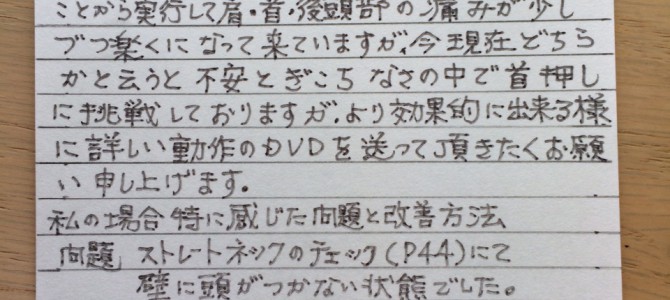 ことから実行して肩・首・後頭部の痛みが少し
づつ楽くになって来ていますが、今現在どちら
かと云うと不安とぎこちなさの中で首押し
に挑戦しておりますが、より効果的に出来る様
に詳しい動作のDVDを送って頂きたくお願
い申し上げます。
私の場合特に感じた問題と改善方法
問題 ストレートネックのチェック(P44)にて
壁に頭がつかない状態でした。